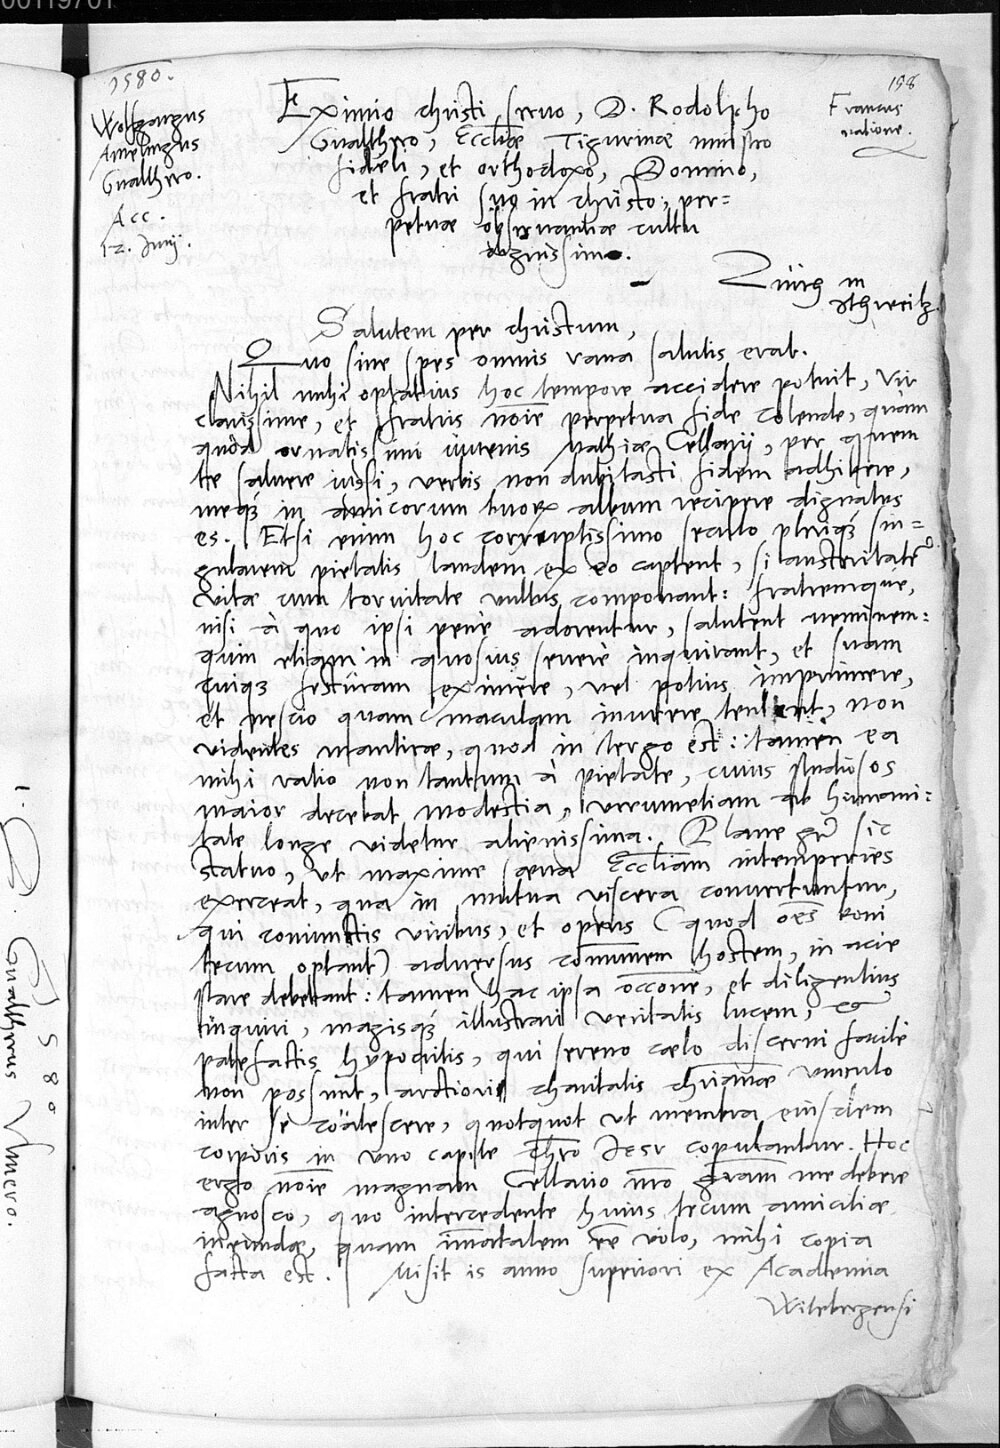 00119701
1580.
198
Wolfgangus
Amelingus
Gualthero.
Acc.
12. Junij.
Francus
natione.
Eximio christi servo, D. Rodolpho
Gualthero, Eccliae Tigurinae ministro
fideli, et orthodoxo, Domino,
et fratri suo in christo, per=
petuae observantiae cultu
dignissimo.
Zürich in
Salutem per christum,
Quo sine spes omnis vana salutis erat.
Nihil mihi optatius hoc tempore accidere potuit, vir
clarissime, et fratris noie perpetua fide colende, quàm
quòd ornatissimi iuvenis Cellarij, per quem
te salvere iussi, verbis non dubitasti fidem adhibere,
meq3 in amicorum tuorum album recipere dignatus
es. Etsi enim hoc corruptissimo seculo pleriq3 sin=
gularem pietatis laudem ex eo captent, si austeritatem
vitae cum torvitate vultus componant: fratremque,
nisi à quo ipsi penè adorentur, salutent neminem:
quin etiam in quosvis severè inquirant, et suam
cuiq3 exprimere, vel potius imprimere,
et nescio quam maculam inurere tentent, non
videntes manticae, quod in tergo est: tamen ea
mihi ratio non tantum à pietate, cuius studiosos
maior decebat modestia, verumetiam ab humani=
tate longe videtur alienissima. Plane sic
statuo, ut maxime saeva Eccliam intemperies
exerceat, qua in mutua viscera convertuntur,
qui coniunctis viribus, et operis (quod oes boni
tecum optant) adversus communem hostem, in acie
stare debebant: tamen hac ipsa occone, et diligentius
inquiri, magisq3 illustrari veritatis lucem, et
patefactis hypocritis, qui sereno caelo discerni facilè
non possunt, arctioris charitatis chrianae vinculo
inter se coalescere, quotquot ut membra eiusdem
corporis in uno capite chro Jesu copulantur. Hoc
ergo noie magnam Cellario nro gram me debere
agnosco, quo intercedente huius tecum amicitiae
ineundae, quam imortalem ee volo, mihi copia
facta est. Misit is anno superiori ex Academia
Witebergensi
1580
Gualtherus